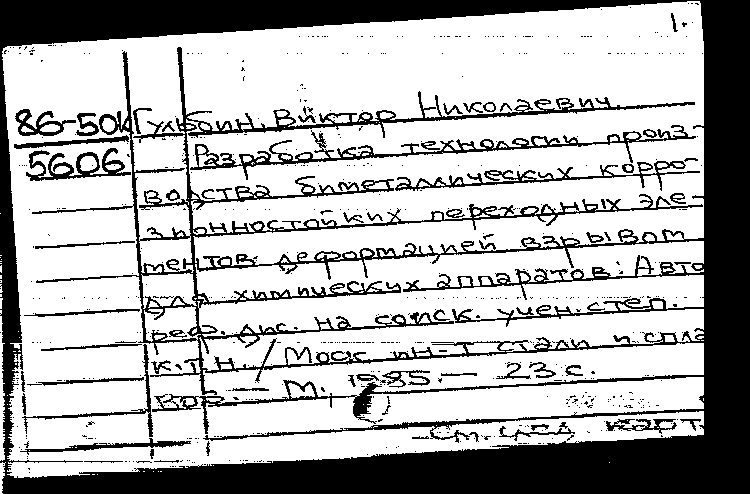 1.
86-50к Гульбин, Виктор Николаевич.
5606 Разработка технологии произ-
водства биметаллических корро-
зионностойких переходных эле-
ментов деформацией взрывом
для химических аппаратов: Авто
реф. дис. на соиск. учен. степ.
к.т.н. / Моск ин-т стали и спла
вов. — М., 1985. — 23 с.
См. след. карт.